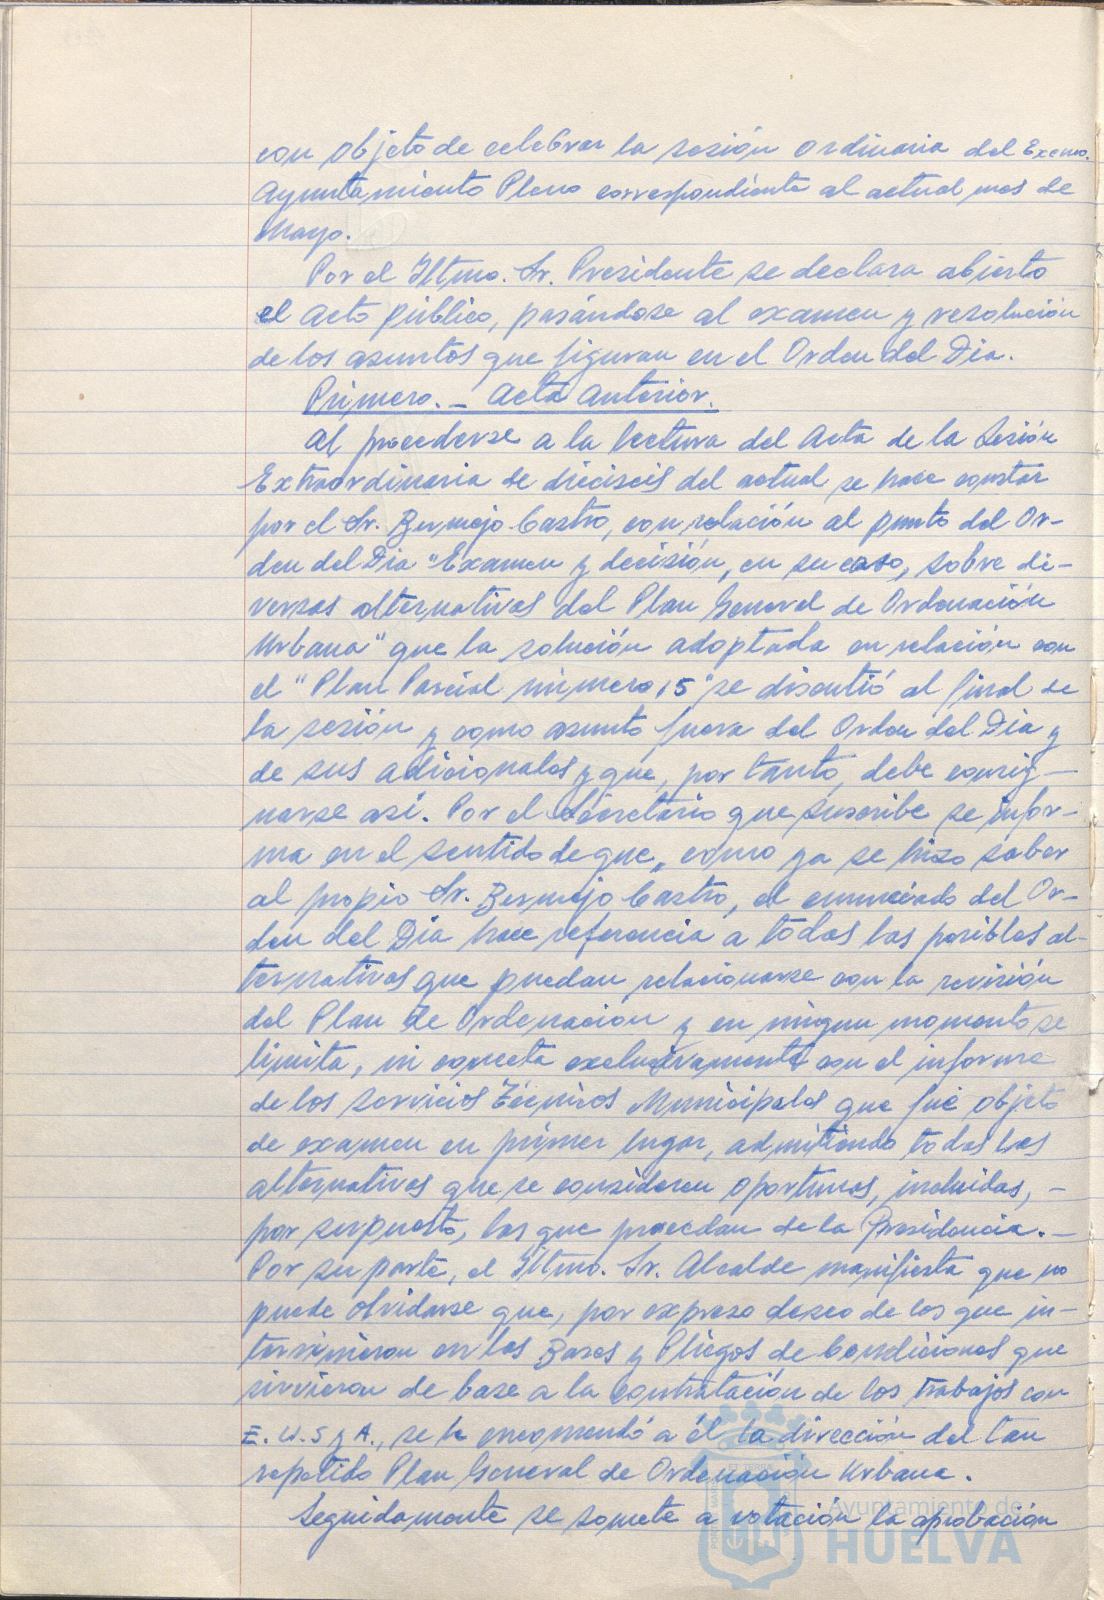 con objeto de celebrar la sesión ordinaria del Excmo.
Ayuntamiento Pleno correspondiente al actual mes de
Mayo.
Por el Iltmo. Sr. Presidente se declara abierto
el acto público, pasándose al examen y resolución
de los asuntos que figuran en el Orden del Dia.
Primero. - Acta anterior.
Al procederse a la lectura del Acta de la Sesión
Extraordinaria de dieciseis del actual se hace constar
por el Sr. Bermejo Castro, con relación al punto del Or-
den del Dia "Examen y decisión, en su caso, sobre di-
versas alternativas del Plan General de Ordenación
Urbana" que la solución adoptada en relación con
el "Plan Parcial número 15" se discutió al final de
la sesión y como asunto fuera del Orden del Dia y
de sus adicionales y que, por tanto, debe consig-
narse asi. Por el Secretario que suscribe se infor-
ma en el sentido de que, como ya se hizo saber
al propio Sr. Bermejo Castro, el enunciado del Or-
den del Dia hace referencia a todas las posibles al-
ternativas que puedan relacionarse con la revisión
del Plan de Ordenación y en ningun momento se
limita, ni conecta exclusivamente con el informe
de los Servicios Técnicos Municipales que fué objeto
de examen en primer lugar, admitiendo todas las
alternativas que se consideren oportunas, incluidas, -
por supuesto, las que procedan de la Presidencia. -
Por su parte, el Iltmo. Sr. Alcalde manifiesta que no
puede olvidarse que, por expreso deseo de los que in-
tervinieron en las Bases y Pliegos de Condiciones que
sirvieron de base a la contratación de los trabajos con
E.U.S y A., se le encomendó a él la dirección del tan
repetido Plan General de Ordenación Urbana.
Seguidamente se somete a votación la aprobación
Ayuntamiento de
HUELVA